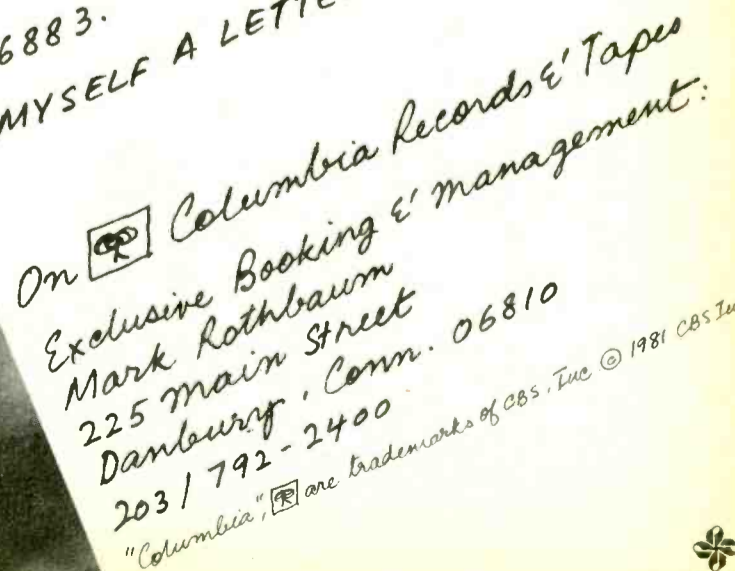 6883.
MYSELF A LETTE
On Columbia Records & Tapes
Exclusive Booking & Management:
Mark Rothbaum
225 Main Street
Danbury, Conn. 06810
203/792-2400
"Columbia", are trademarks of CBS, Inc © 1981 CBS Inc